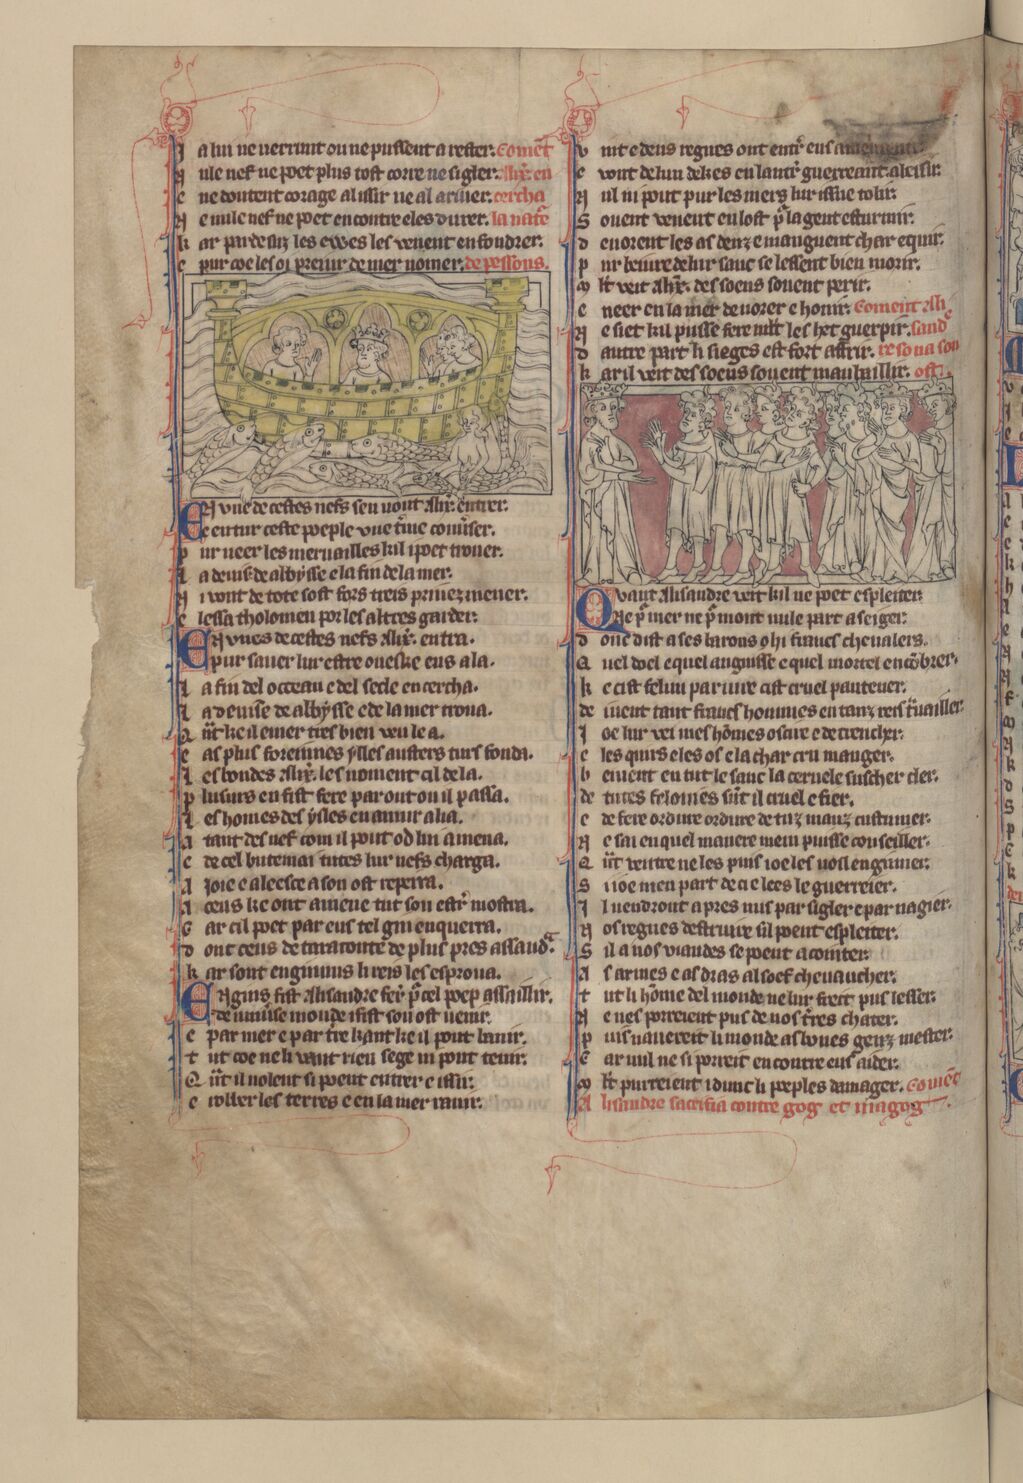 I a lui ne verrunt ou ne pussent a rester. Comēt
N ule nef ne poet plus tost corre ne sigler. Alix̄. en
E ne doutent corage al issir ne al ariuer. cercha
N e nule nef ne poet encontre eles durer. la natē
k ar par desuz les ewes les venent enfondrer.
E pur coe les oi preiur de mer nomer. de pessons.
En vne de cestes nefs sen vout Alix̄. entrer.
E entur ceste poeple vne
p ur veer les meruailles kil i poet trouer.
L a deuise de abysse e la fin de la mer.
N i vont de tote sost fors treis priuez mener.
E lessa tholomeu por les altres garder.
En vnes de cestes nefs Alix̄. entra.
E pur sauer lur estre oueske eus ala.
L a fin del occean e del secle encercha.
L a deuise de abysse e de la mer troua.
Q n̄t ke il en mer tres bien
E as plus foreinnes ysles
L es bondes Alix̄. les noment cil de la.
P lusurs en fist fere par out ou il passa.
L es homes des ysles
A tant des nef com il pout od lui amena.
E de cel butemai tutes lur nefs charga.
A ioie e a leesce a son ost repeira.
A ceus ke ont amene tut son estr̄ mostra.
S ar cil poet par eus tel gin enquerra.
D ont ceus de taracunte de plus pres assaudr̄a
k ar sont enginnus li reis les esproua.
Engins fist Alisandre fer̄ p̄ cel poep assaillir.
De
E par mer e par t̄re kant ke il pout banir.
T ut coe ne li vaut rien sege ni pout tenir.
Q n̄t il volent si poent entrer e issir.
E
V nit e deus regnes ont entr̄ eus
E vont de lun de kes en lautr̄ guerreant
N ul ni pout pur les mers lur issue tolir.
S ouent venent en lost p̄ la gent esturmir.
D euorent les as denz e manguent char e quir.
P ur beiure de lur sanc se lessent bien morir.
M l̄t veit Alix̄. des soens souent perir.
E neer en la mer deuorer e honir. Coment Ali
N e siet kil puisse fere mlt les het guerpir. sand
D autre part li sieges est fort
k ar il veit des soens souent maubaillir. ost.
Quant Alisandre veit kil ne poet espleiter
Ne p̄ mer ne p̄ mont nule part aseiger.
D onc dist a ses barons ohi francs cheualers.
Q uel doel e quel anguisse e quel mortel encōbrer.
k e cist felun par iure cist cruel pautener.
De vient tant francs hommes en tanz reis
I oe lur vei mes hōmes ocire e detrencher.
E les quirs e les os e la char cru manger.
B eiuent en tut le sanc la ceruele suscher cler.
De tutes felonies sūt il cruel e fier.
E de fere ordure ordure de tuz mauz custumer.
N e sai en quel manere mein puisse conseiller.
Q n̄t ventre ne les puis ioe les voil enginner.
S i ioe men part de ci e lees le guerreier.
I l vendront apres nus par sigler e par nagier.
N os regnes destruire sil poent espleiter.
S il a nos viandes se poent acointer.
A s armes e as dras al soef cheuaucher.
T ut li hōme del monde ne lur freit pus lesser.
N e nes porreient pus de nos t̄res chater.
P
C ar nul ne si porreit encontre eus aider.
M l̄t purreient idunc li poeples damager. Comēt
Alisandre sacrifia contre gog et magog